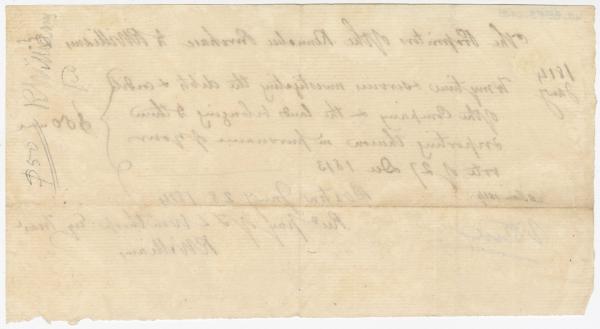 The Proprietors of the Kennebec Purchase to R Williams,
1814
Jany
To my time & services investigating the debts & credits
of the Company & the lands belonging to them
& reporting thereon in pursuance of your
vote of 27 Dec 1813
$50
Boston Jany 28 1814
Recd pay of T L Winthrop Esq Treasr
R Williams,